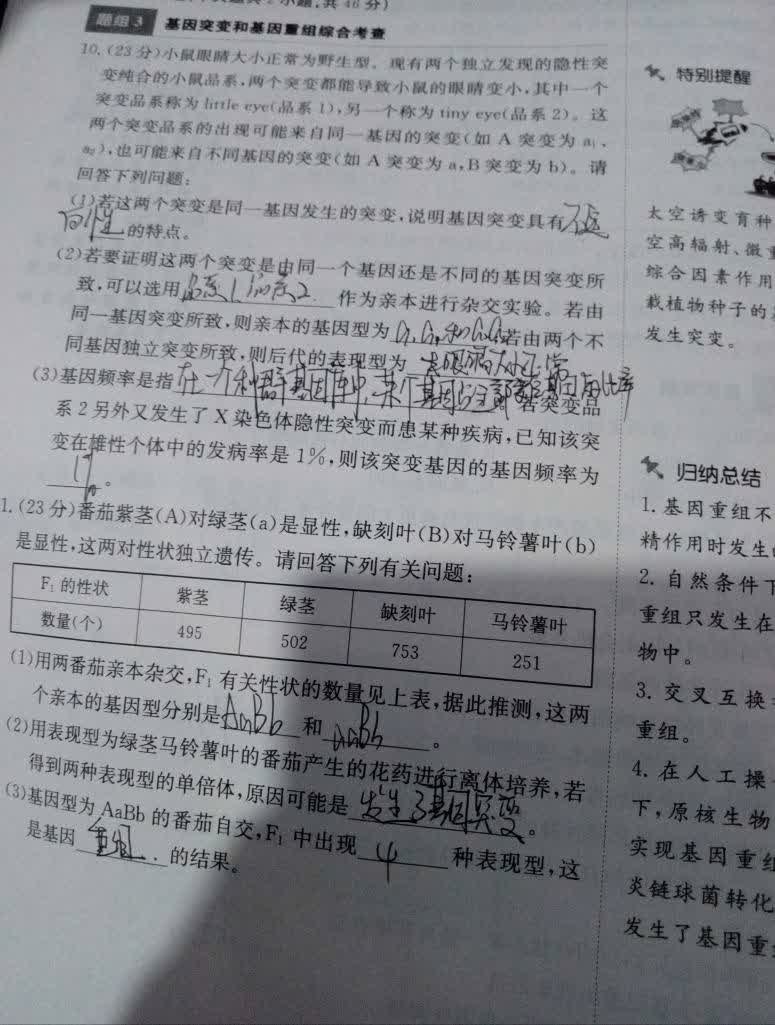 小题,共46分)
题组3 基因突变和基因重组综合考查
10.(23分)小鼠眼睛大小正常为野生型。现有两个独立发现的隐性突
变纯合的小鼠品系,两个突变都能导致小鼠的眼睛变小,其中一个
突变品系称为 little eye(品系1),另一个称为 tiny eye(品系2)。这
两个突变品系的出现可能来自同一基因的突变(如A突变为a₁、
a₂),也可能来自不同基因的突变(如A突变为a,B突变为b)。请
回答下列问题:
(1)若这两个突变是同一基因发生的突变,说明基因突变具有不定
向性的特点。
(2)若要证明这两个突变是由同一个基因还是不同的基因突变所
致,可以选用品系1和品系2作为亲本进行杂交实验。若由
同一基因突变所致,则亲本的基因型为a₁a₁和a₂a₂若由两个不
同基因独立突变所致,则后代的表现型为 眼睛大小正常
(3)基因频率是指在一个种群基因库中,某个基因占全部等位基因的比率
。若突变品
系2另外又发生了X染色体隐性突变而患某种疾病,已知该突
变在雄性个体中的发病率是1%,则该突变基因的基因频率为
1%。
1.(23分)番茄紫茎(A)对绿茎(a)是显性,缺刻叶(B)对马铃薯叶(b)
是显性,这两对性状独立遗传。请回答下列有关问题:
F₁的性状 紫茎 绿茎 缺刻叶 马铃薯叶
数量(个) 495 502 753 251
(1)用两番茄亲本杂交,F₁有关性状的数量见上表,据此推测,这两
个亲本的基因型分别是AaBb和aaBb。
(2)用表现型为绿茎马铃薯叶的番茄产生的花药进行离体培养,若
得到两种表现型的单倍体,原因可能是 发生了基因突变。
(3)基因型为AaBb的番茄自交,F₁中出现4种表现型,这
是基因重组的结果。
特别提醒
太空诱变育种
空高辐射、微重
综合因素作用
载植物种子的
发生突变。
归纳总结
1.基因重组不
精作用时发生
2.自然条件下
重组只发生在
物中。
3.交叉互换
重组。
4.在人工操
下,原核生物
实现基因重组
炎链球菌转化
发生了基因重